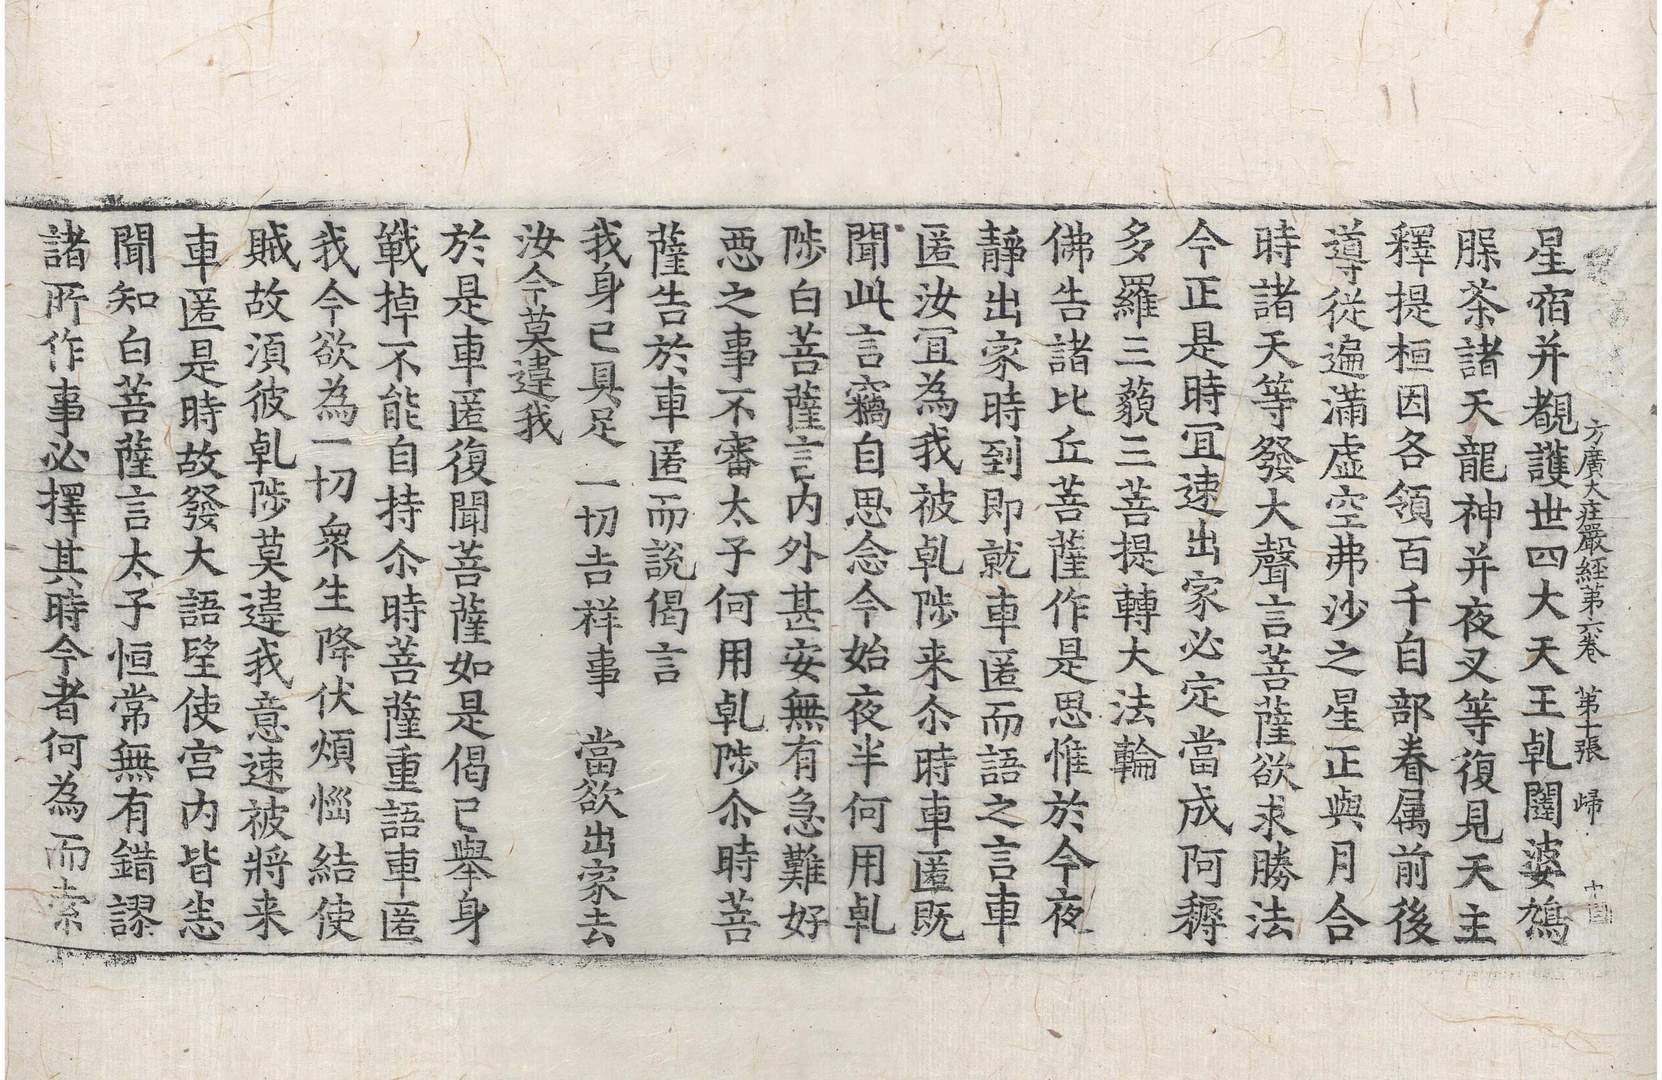 方廣大莊嚴經第六卷 第十張 歸
星宿并覩護世四大天王乹闥婆鳩
脵茶諸天龍神并夜叉等復見天主
釋提桓因各領百千自部眷属前後
導從遍滿虛空弗沙之星正與月合
時諸天等發大聲言菩薩欲求勝法
今正是時冝速出家必定當成阿耨
多羅三藐三菩提轉大法輪
佛告諸比丘菩薩作是思惟於今夜
靜出家時到即就車匿而語之言車
匿汝冝為我被乹陟来尒時車匿既
聞此言竊自思念今始夜半何用乹
陟白菩薩言內外甚安無有急難好
惡之事不審太子何用乹陟尒時菩
薩告於車匿而說偈言
我身已具足 一切吉祥事 當欲出家去
汝今莫違我
於是車匿復聞菩薩如是偈已舉身
戰掉不能自持尒時菩薩重語車匿
我今欲為一切衆生降伏煩惱結使
賊故湏彼乹陟莫違我意速被將来
車匿是時故發大語望使宮内皆悉
聞知白菩薩言太子恒常無有錯謬
諸所作事必擇其時今者何為而索